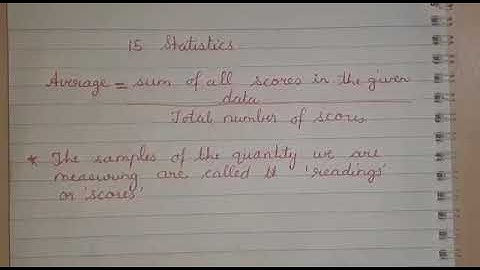 15 Statistics
Average = sum of all scores in the given
data
Total number of scores
* The samples of the quantity we are
measuring are called 'readings'
or 'scores'